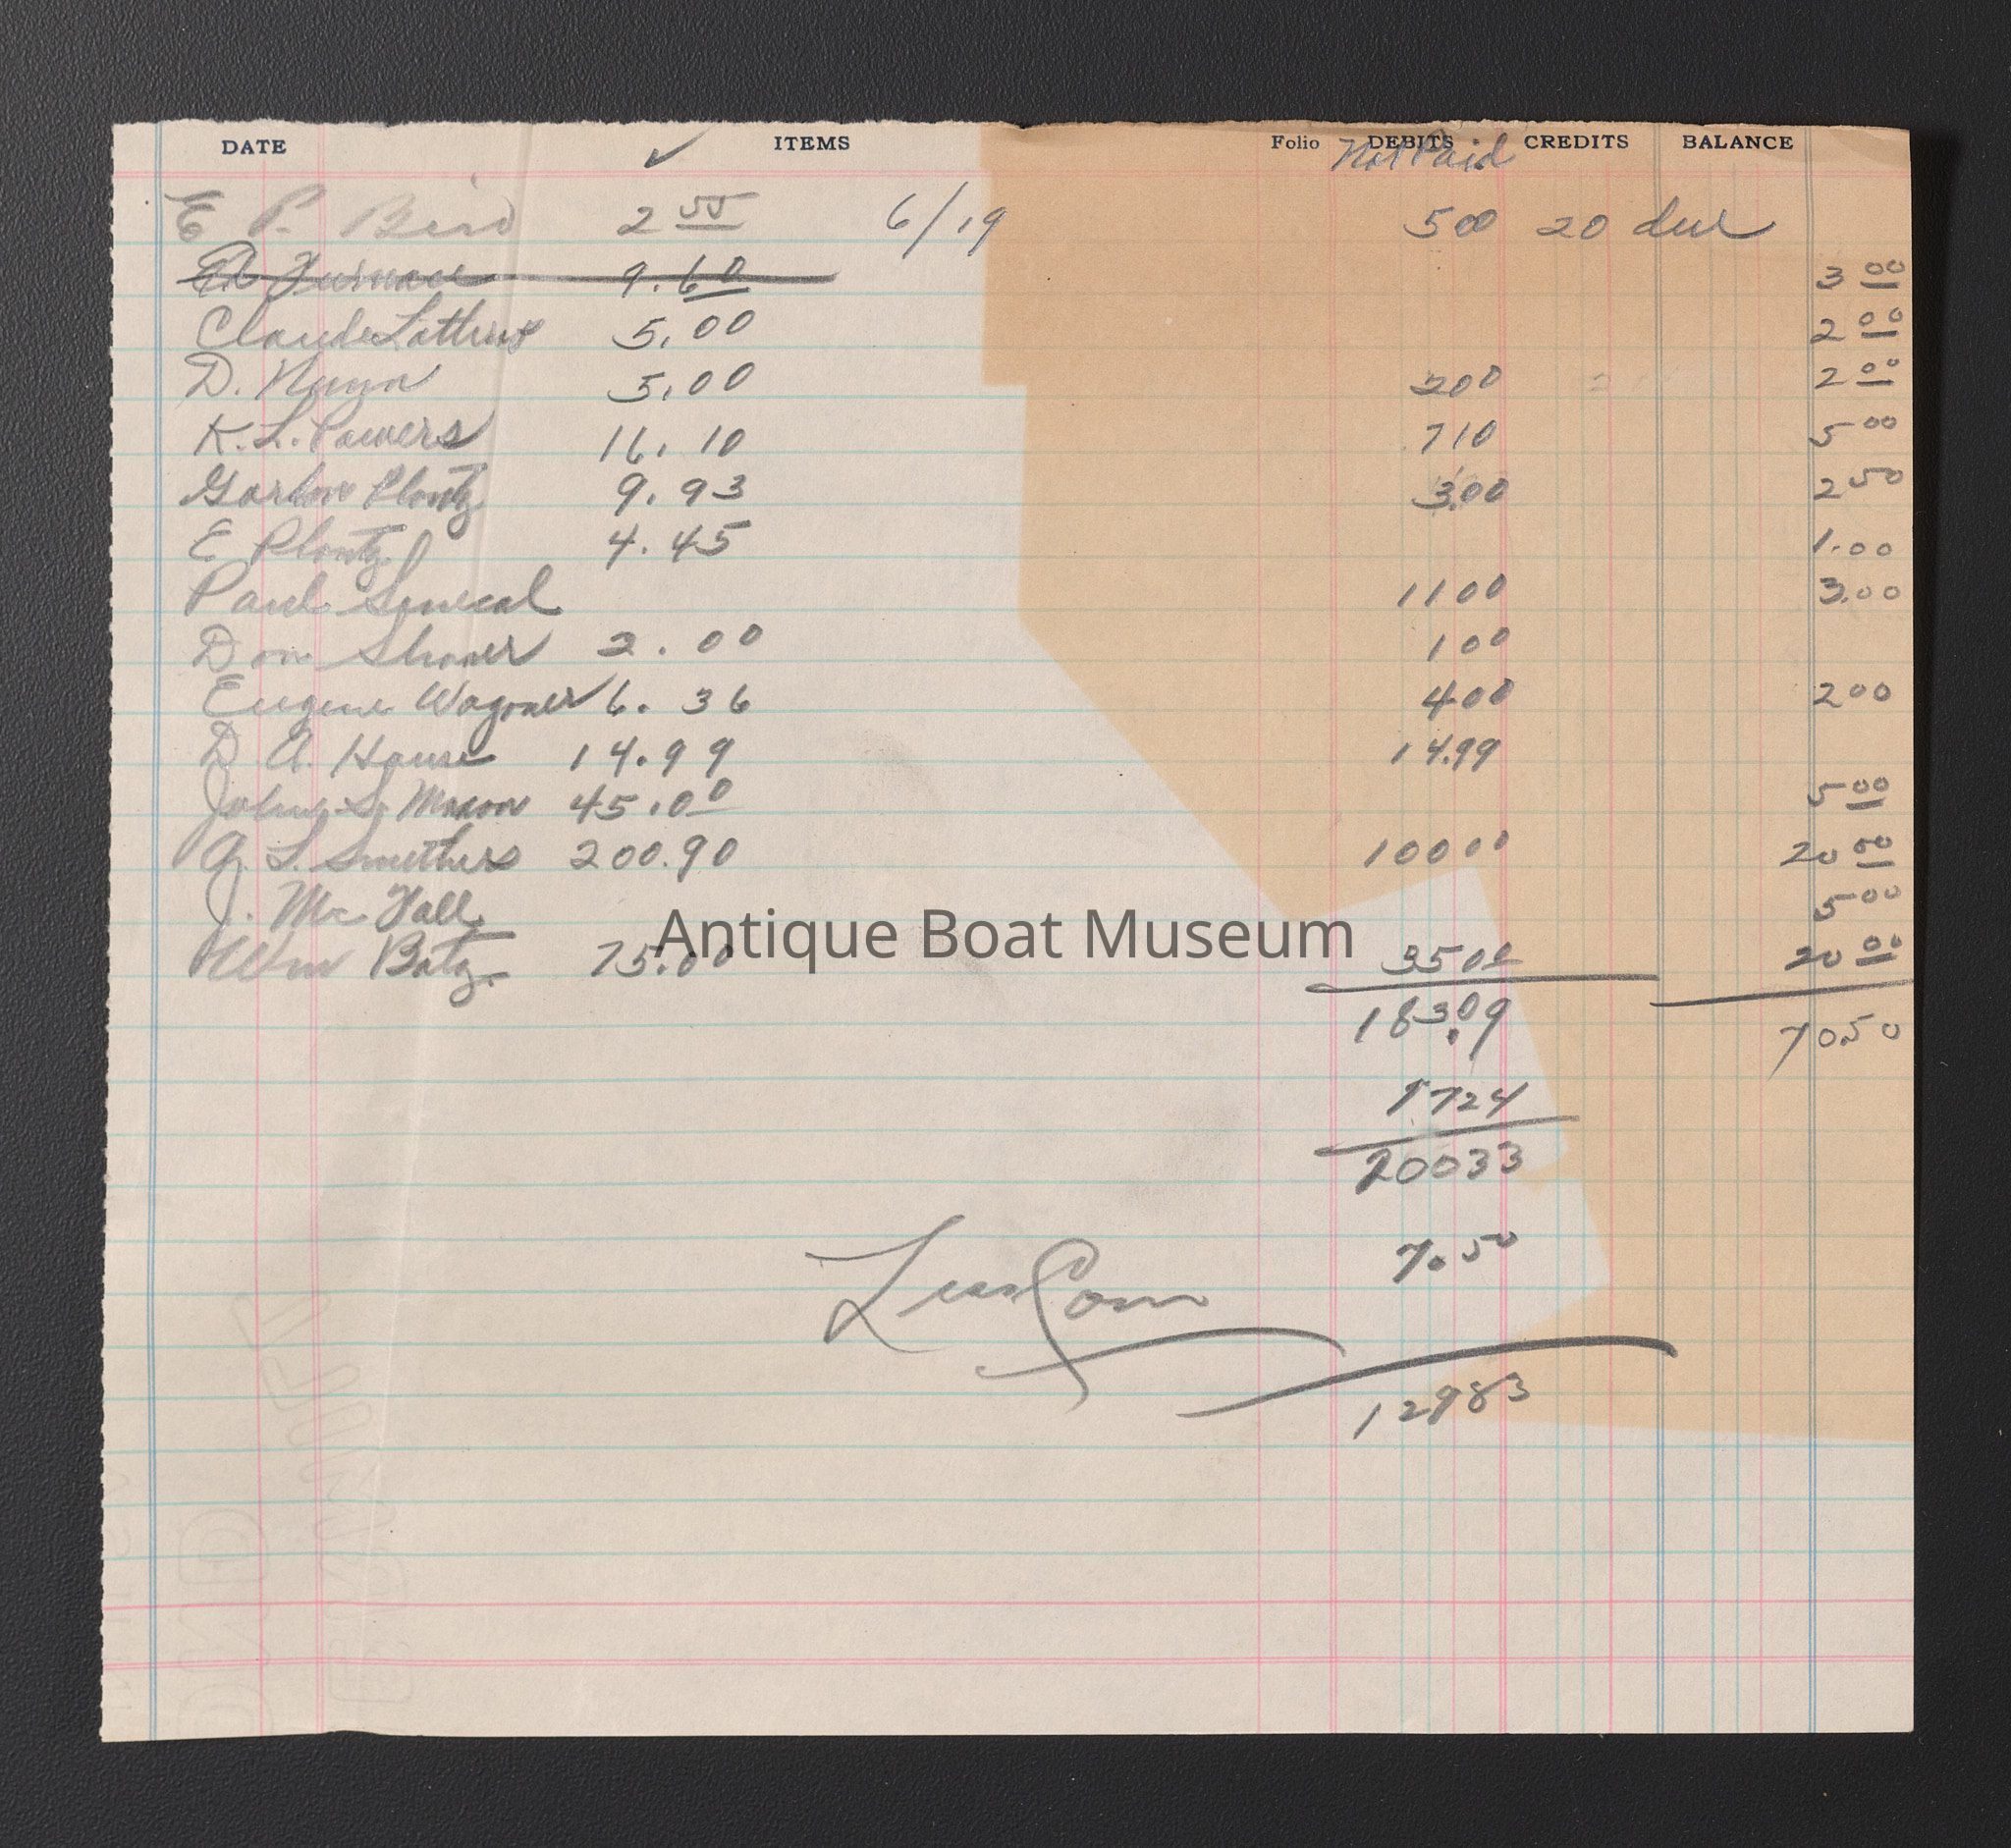 DATE ✓ ITEMS Folio DEBITS CREDITS BALANCE
Not Paid
E P. Bird 2 55 6/19 500 20 due
9.60 3 00
Claude 5.00 2 00
D. Nunn 5.00 200 2 00
K. L. Powers 16.10 710 5 00
Gordon Plontz 9.93 3.00 2 50
E Plontz 4.45 1.00
Paul Senecal 1100 3.00
Don 2.00 100
Eugene Wagoner 6.36 400 200
D A. House 14.99 14.99
John S. Mason 45.00 5 00
A. L. Smithers 200.90 100 00 20 00
J. Mc Fall 5 00
Wm Batz. 75.00 3500 20 00
Antique Boat Museum
183.09 70.50
1724
20033
Less Com 7.50
12983